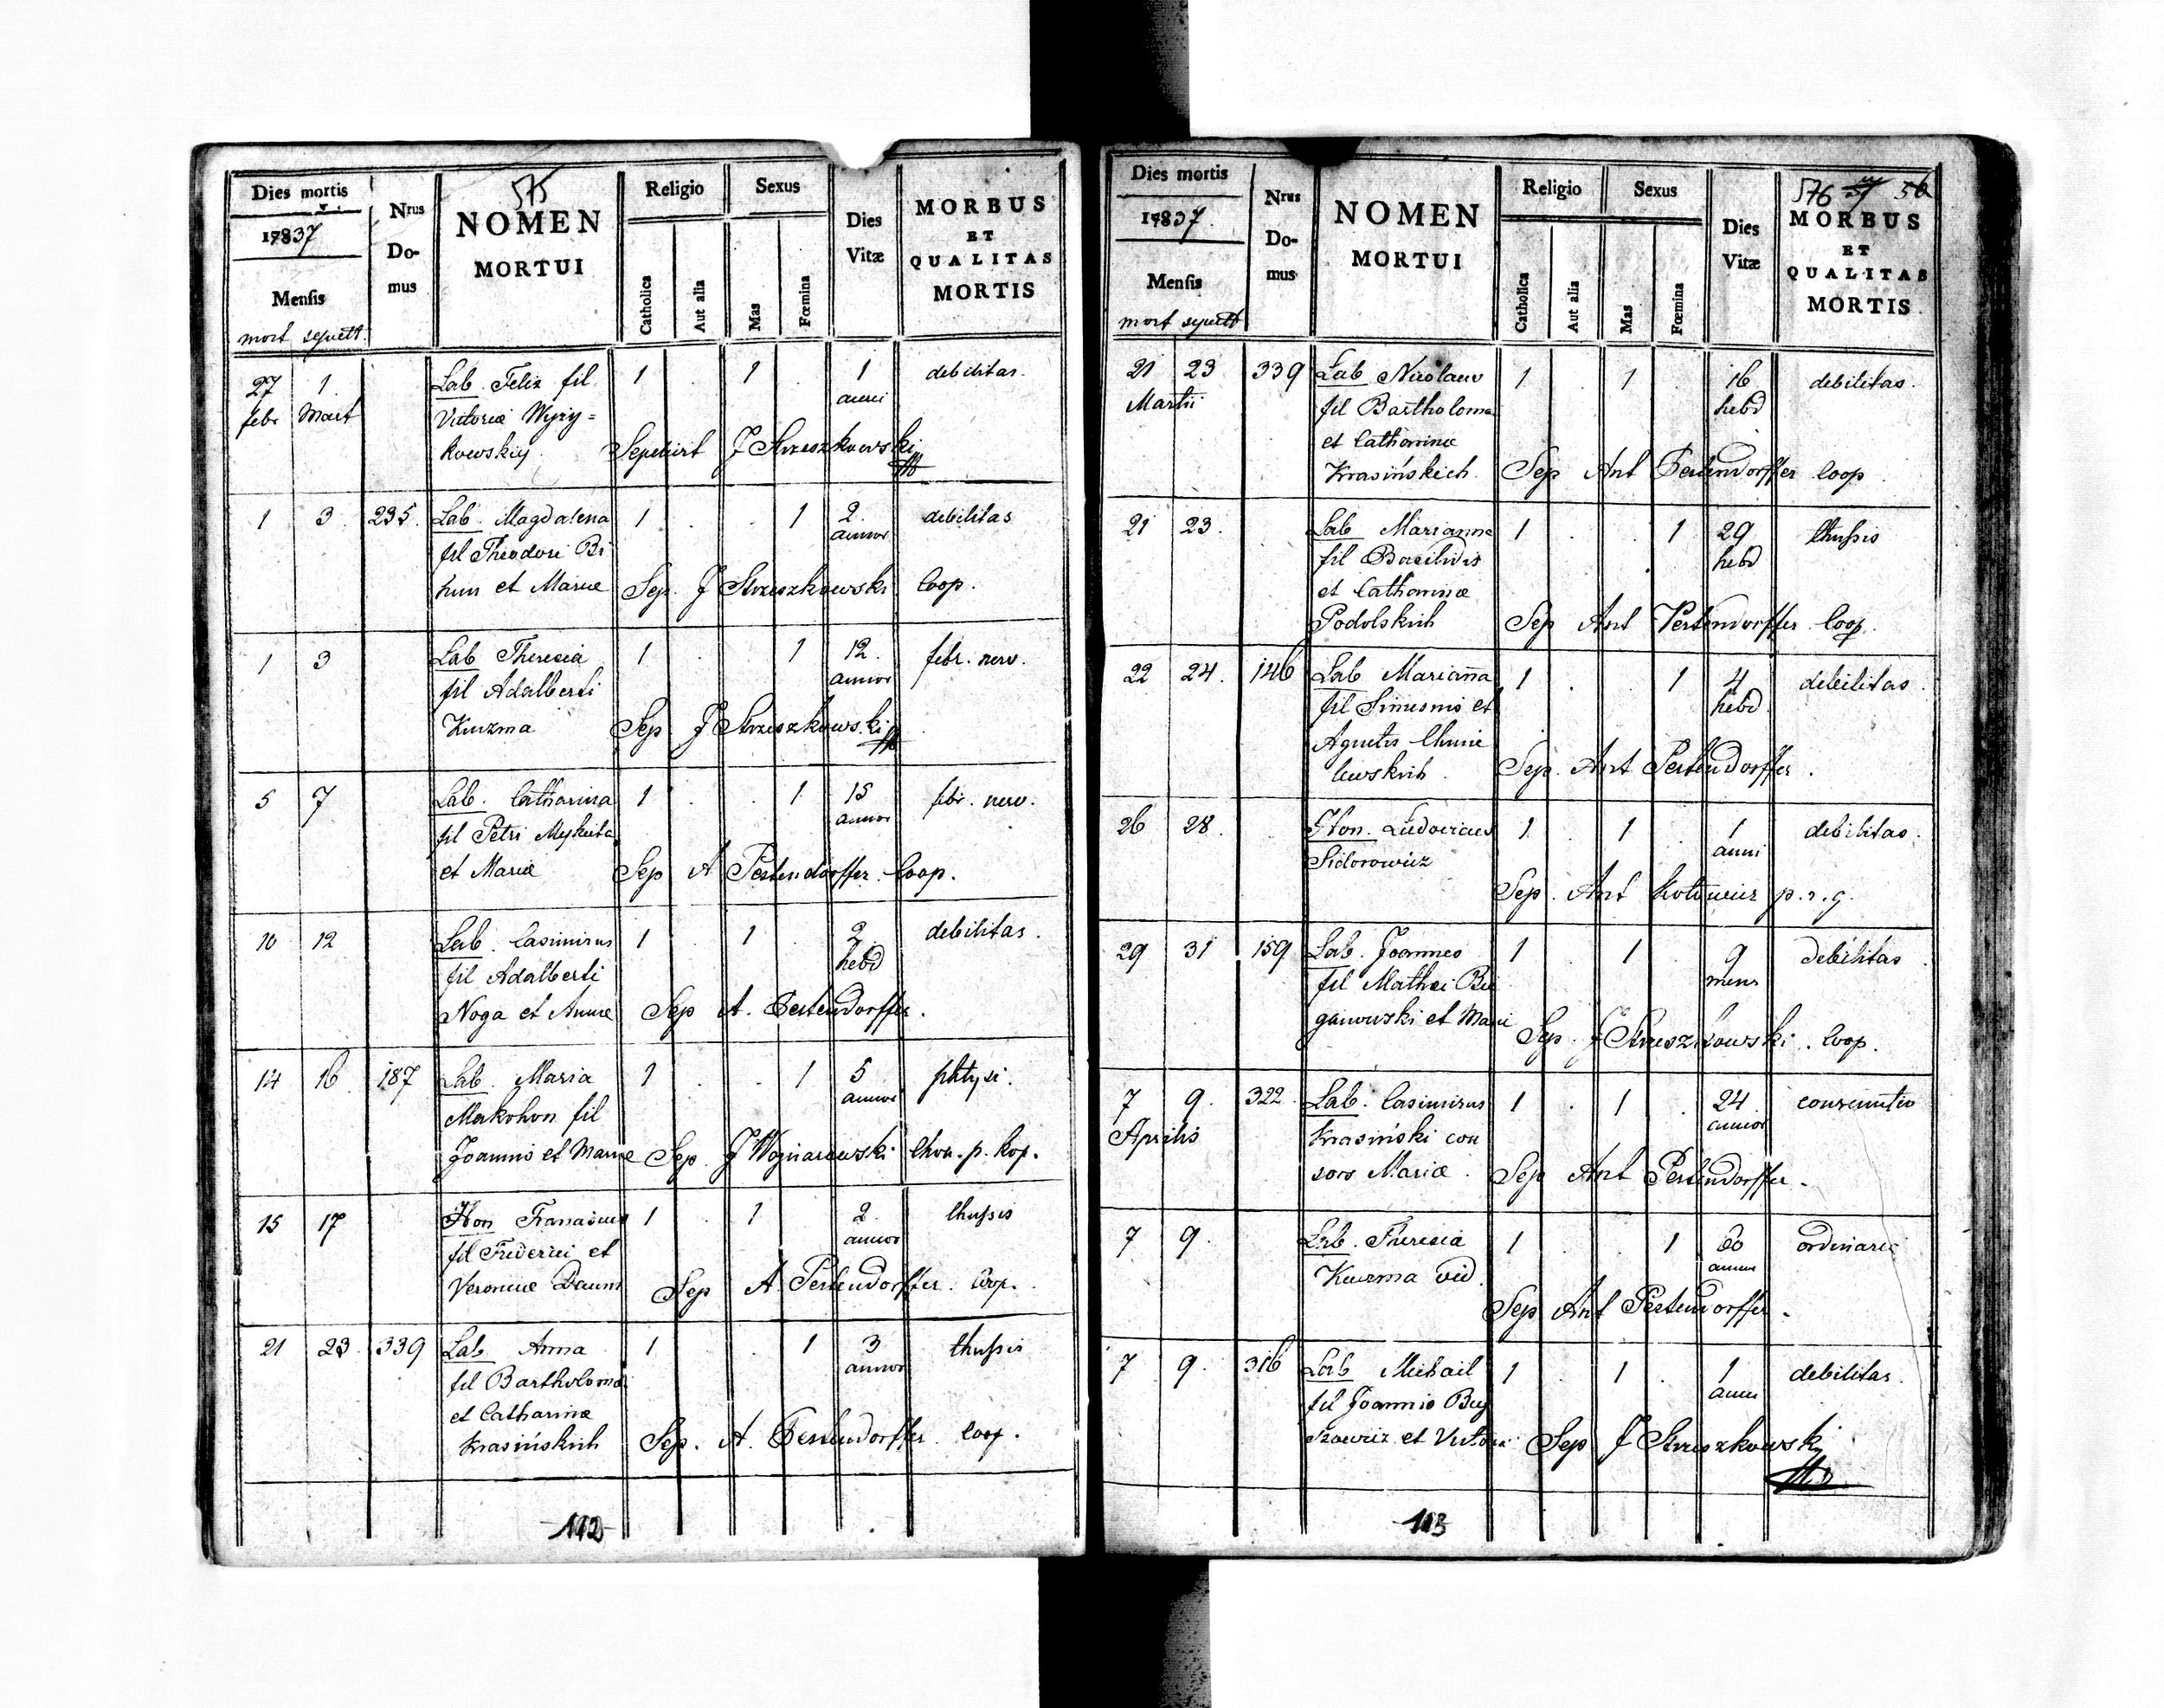 Dies mortis
17837
Mensis
mort sepult.
Nrus
Do-
mus
575
NOMEN
MORTUI
Religio
Catholica
Aut alia
Sexus
Mas
Fœmina
Dies
Vitæ
MORBUS
ET
QUALITAS
MORTIS
27 1 Lab. Felix fil 1 . 1 . 1 debilitas.
febr Mart Victoriæ Wyry= anni
kowskiy. Sepelivit J Strzeszkowski
1 3 235. Lab. Magdalena 1 . . 1 2. debilitas
fil Theodori Bi annor
hun et Mariæ Sep. J Strzeszkowski Coop.
1 3 Lab Theresia 1 . . 1 12. febr. nerv.
fil Adalberti annor
Kuzma Sep J Strzeszkowski
5 7 Lab. Catharina 1 . . 1 15 febr. nerv.
fil Petri Mykita annor
et Mariæ Sep A Pertendorffer Coop.
10 12 Lab. Casimirus 1 . 1 . 2 debilitas.
fil Adalberti hebd
Noga et Annæ Sep A. Pertendorffer.
14 16 187 Lab. Maria 1 . . 1 5 phtysi.
Makohon fil annor
Joannis et Mariæ Sep. J Woynarowski p. kop.
15 17 Hon Franciscus 1 . 1 . 2. thussis
fil Friderici et annor
Veronicæ Daum Sep A Pertendorffer. Coop.
21 23 339 Lab Anna 1 . . 1 3 thussis
fil Bartholomæi annor
et Catharinæ
Krasińskich Sep. A. Pertendorffer Coop.
112
Dies mortis
17837.
Mensis
mort sepult
Nrus
Do-
mus
NOMEN
MORTUI
Religio
Catholica
Aut alia
Sexus
Mas
Fœmina
Dies
Vitæ
576 56
MORBUS
ET
QUALITAS
MORTIS
21 23 339 Lab Nicolaus 1 . 1 . 16 debilitas.
Martii fil Bartholomæ hebd
et Catharinæ
Krasińskich. Sep Ant Pertendorffer Coop
21 23. Lab Marianna 1 . . 1 29 thussis
fil Basilidis hebd
et Catharinæ
Podolskich Sep Ant Pertendorffer Coop.
22 24. 146 Lab Marianna 1 . . 1 4 debilitas.
fil Simeonis et hebd
Agnetis Chmie
lewskich. Sep. Ant Pertendorffer.
26 28. Hon. Ludovicus 1 . 1 . 1 debilitas.
Sidorowicz anni
Sep. Ant p. r. g.
29 31 159 Lab. Joannes 1 . 1 . 9 debilitas.
fil Mathæi Bu mens
ganowski et Mari Sep. J Strzeszkowski. Coop.
7 9. 322. Lab. Casimirus 1 . 1 . 24.
Aprilis Krasiński con annor
sors Mariæ. Sep Ant Pertendorffer.
7 9. Lab. Theresia 1 . . 1 60 ordinaria
Kuzma vid. annor
Sep Ant Pertendorffer.
7 9. 316 Lab Michail 1 . 1 . 1 debilitas.
fil Joannis anni
et Victori Sep J Strzeszkowski
113